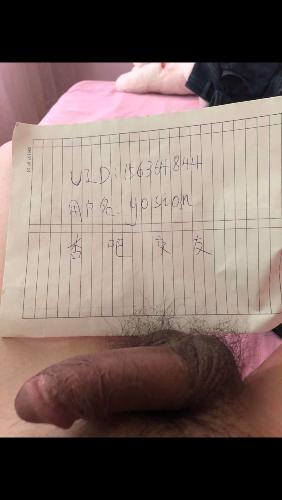 UID:15634844
用户名: yosion
杏吧交友